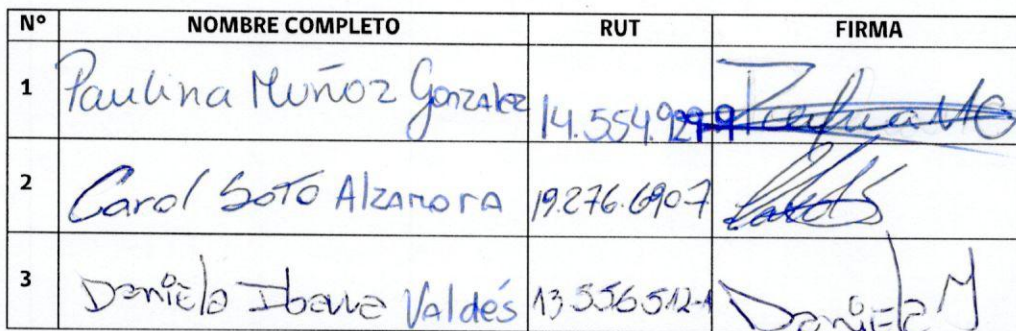 N° NOMBRE COMPLETO RUT FIRMA
1 Paulina Muñoz Gonzalez 14.554.929-9
2 Carol Soto Alzamora 19.276.690-7
3 Daniela Valdés 13.556.512-1 Daniela M